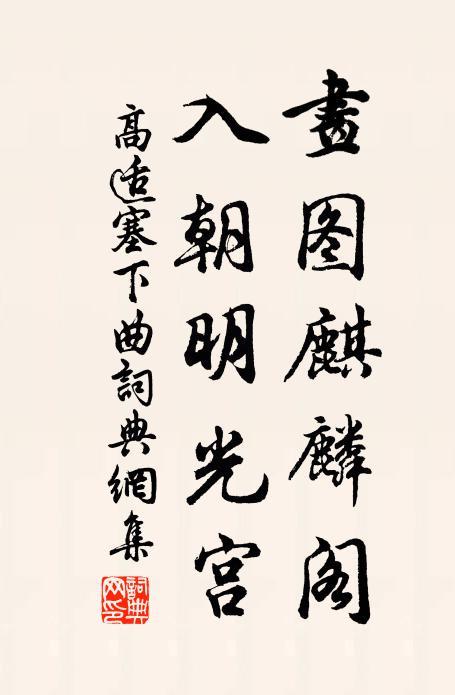 畫图麒麟阁
入朝明光宫
高适塞下曲詞典網集
詞典网印